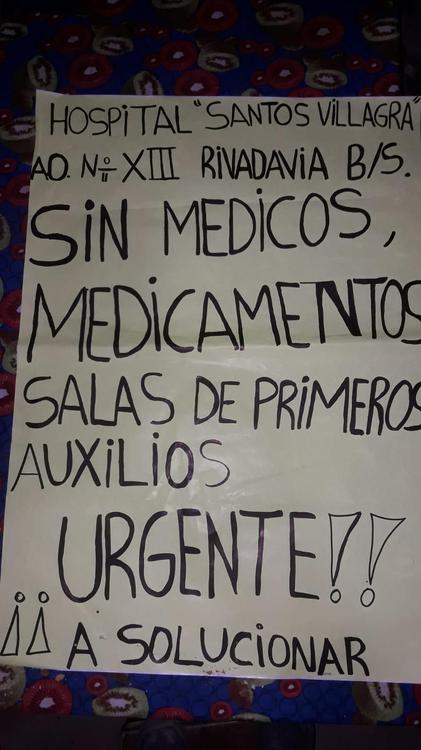 HOSPITAL "SANTOS VILLAGRA"
AO. Nº XIII RIVADAVIA B/S.
SIN MEDICOS,
MEDICAMENTOS
SALAS DE PRIMEROS
AUXILIOS
URGENTE!!
¡¡ A SOLUCIONAR